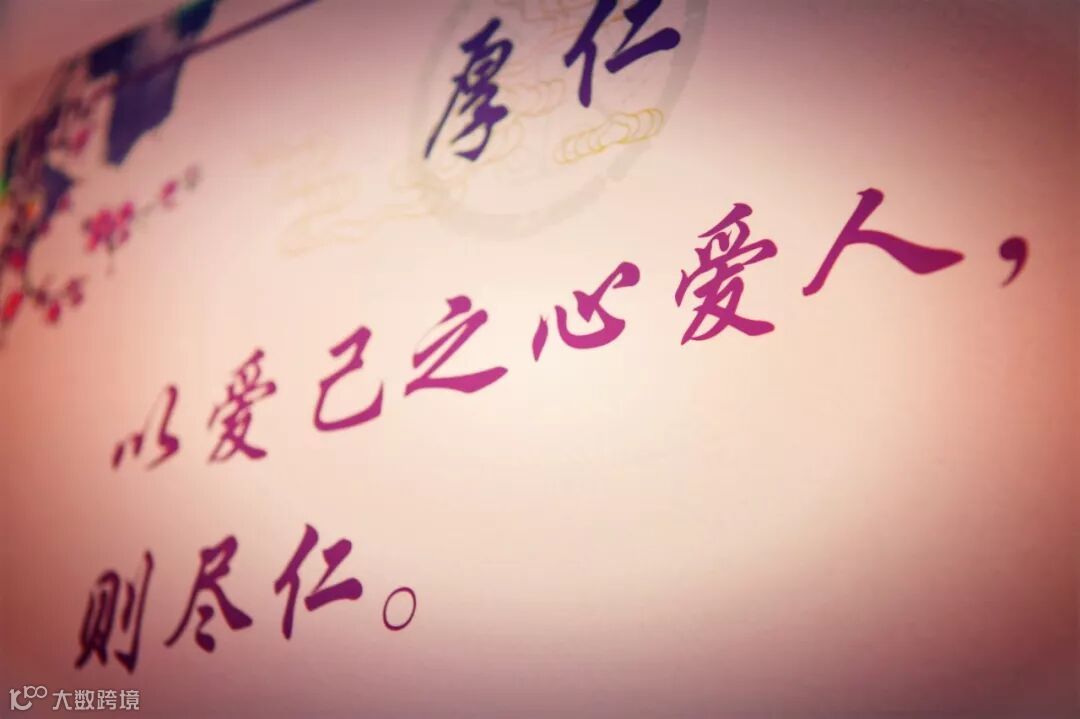 厚仁
以爱己之心爱人，
则尽仁。
大数跨境